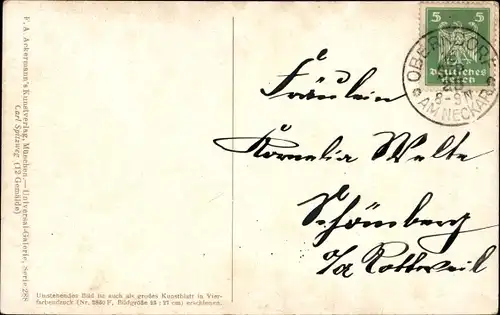 F. A. Ackermann's Kunstverlag, München.—Universal-Galerie, Serie 288
Carl Spitzweg (12 Gemälde)
5 5
Deutsches
Reich
OBERNDORF
8-9 N
* AM NECKAR *
Fräulein
Kornelia Welte
Schömberg
o/a Rottweil
Umstehendes Bild ist auch als großes Kunstblatt in Vier-
farbendruck (Nr. 2860 F, Bildgröße 15 : 27 cm) erschienen.